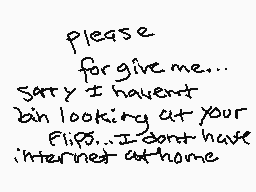 please
forgive me...
sary I havent
bin looking at your
flips...I dont have
internet at home